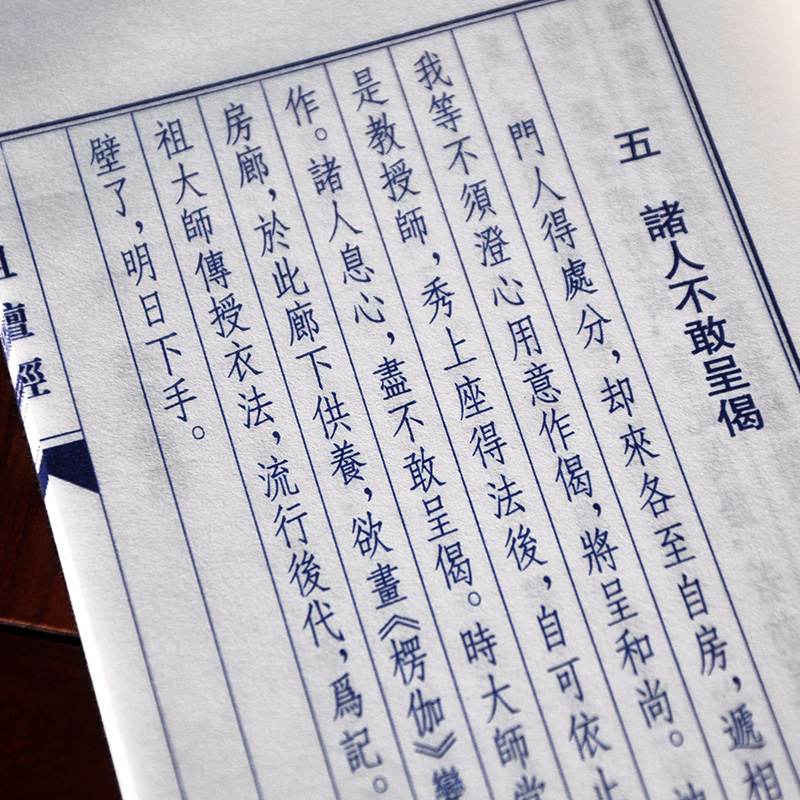 五　諸人不敢呈偈
門人得處分，却來各至自房，遞相
我等不須澄心用意作偈，將呈和尚。
是教授師，秀上座得法後，自可依
作。諸人息心，盡不敢呈偈。時大師堂
房廊，於此廊下供養，欲畫《楞伽》變
祖大師傳授衣法，流行後代，爲記。
壁了，明日下手。
壇經